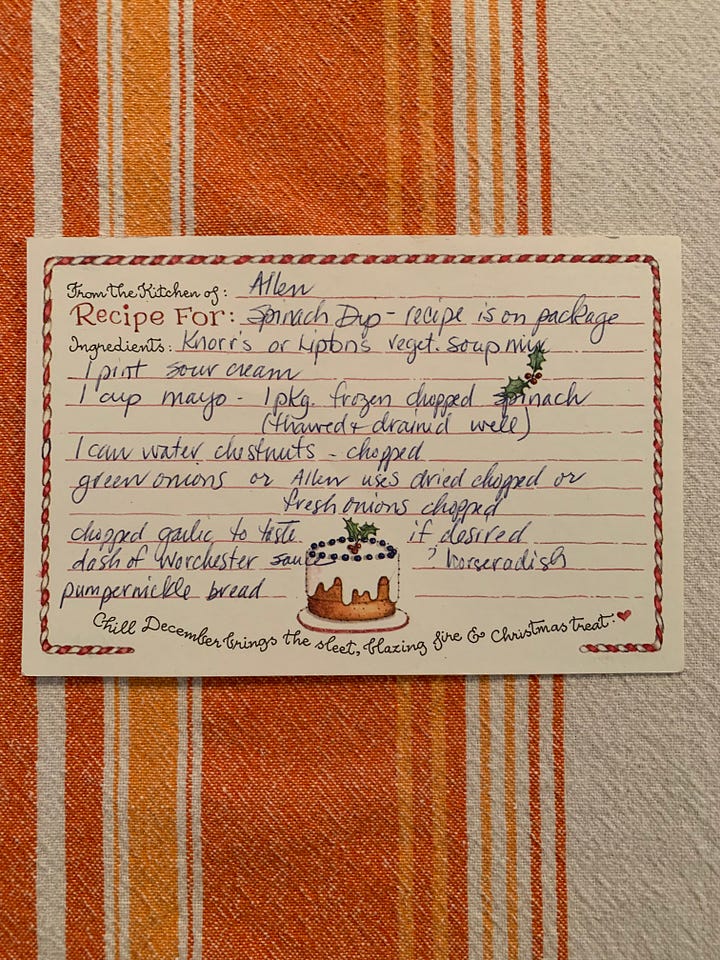 From the Kitchen of: Allen
Recipe For: Spinach Dip - recipe is on package
Ingredients: Knorr's or Lipton's veget. soup mix
1 pint sour cream
1 cup mayo - 1 pkg. frozen chopped spinach
(thawed & drained well)
1 can water chestnuts - chopped
green onions or Allen uses dried chopped or
fresh onions chopped
chopped garlic to taste if desired
dash of Worchester sauce ? horseradish
pumpernickle bread
Chill December brings the sleet, blazing fire & Christmas treat.